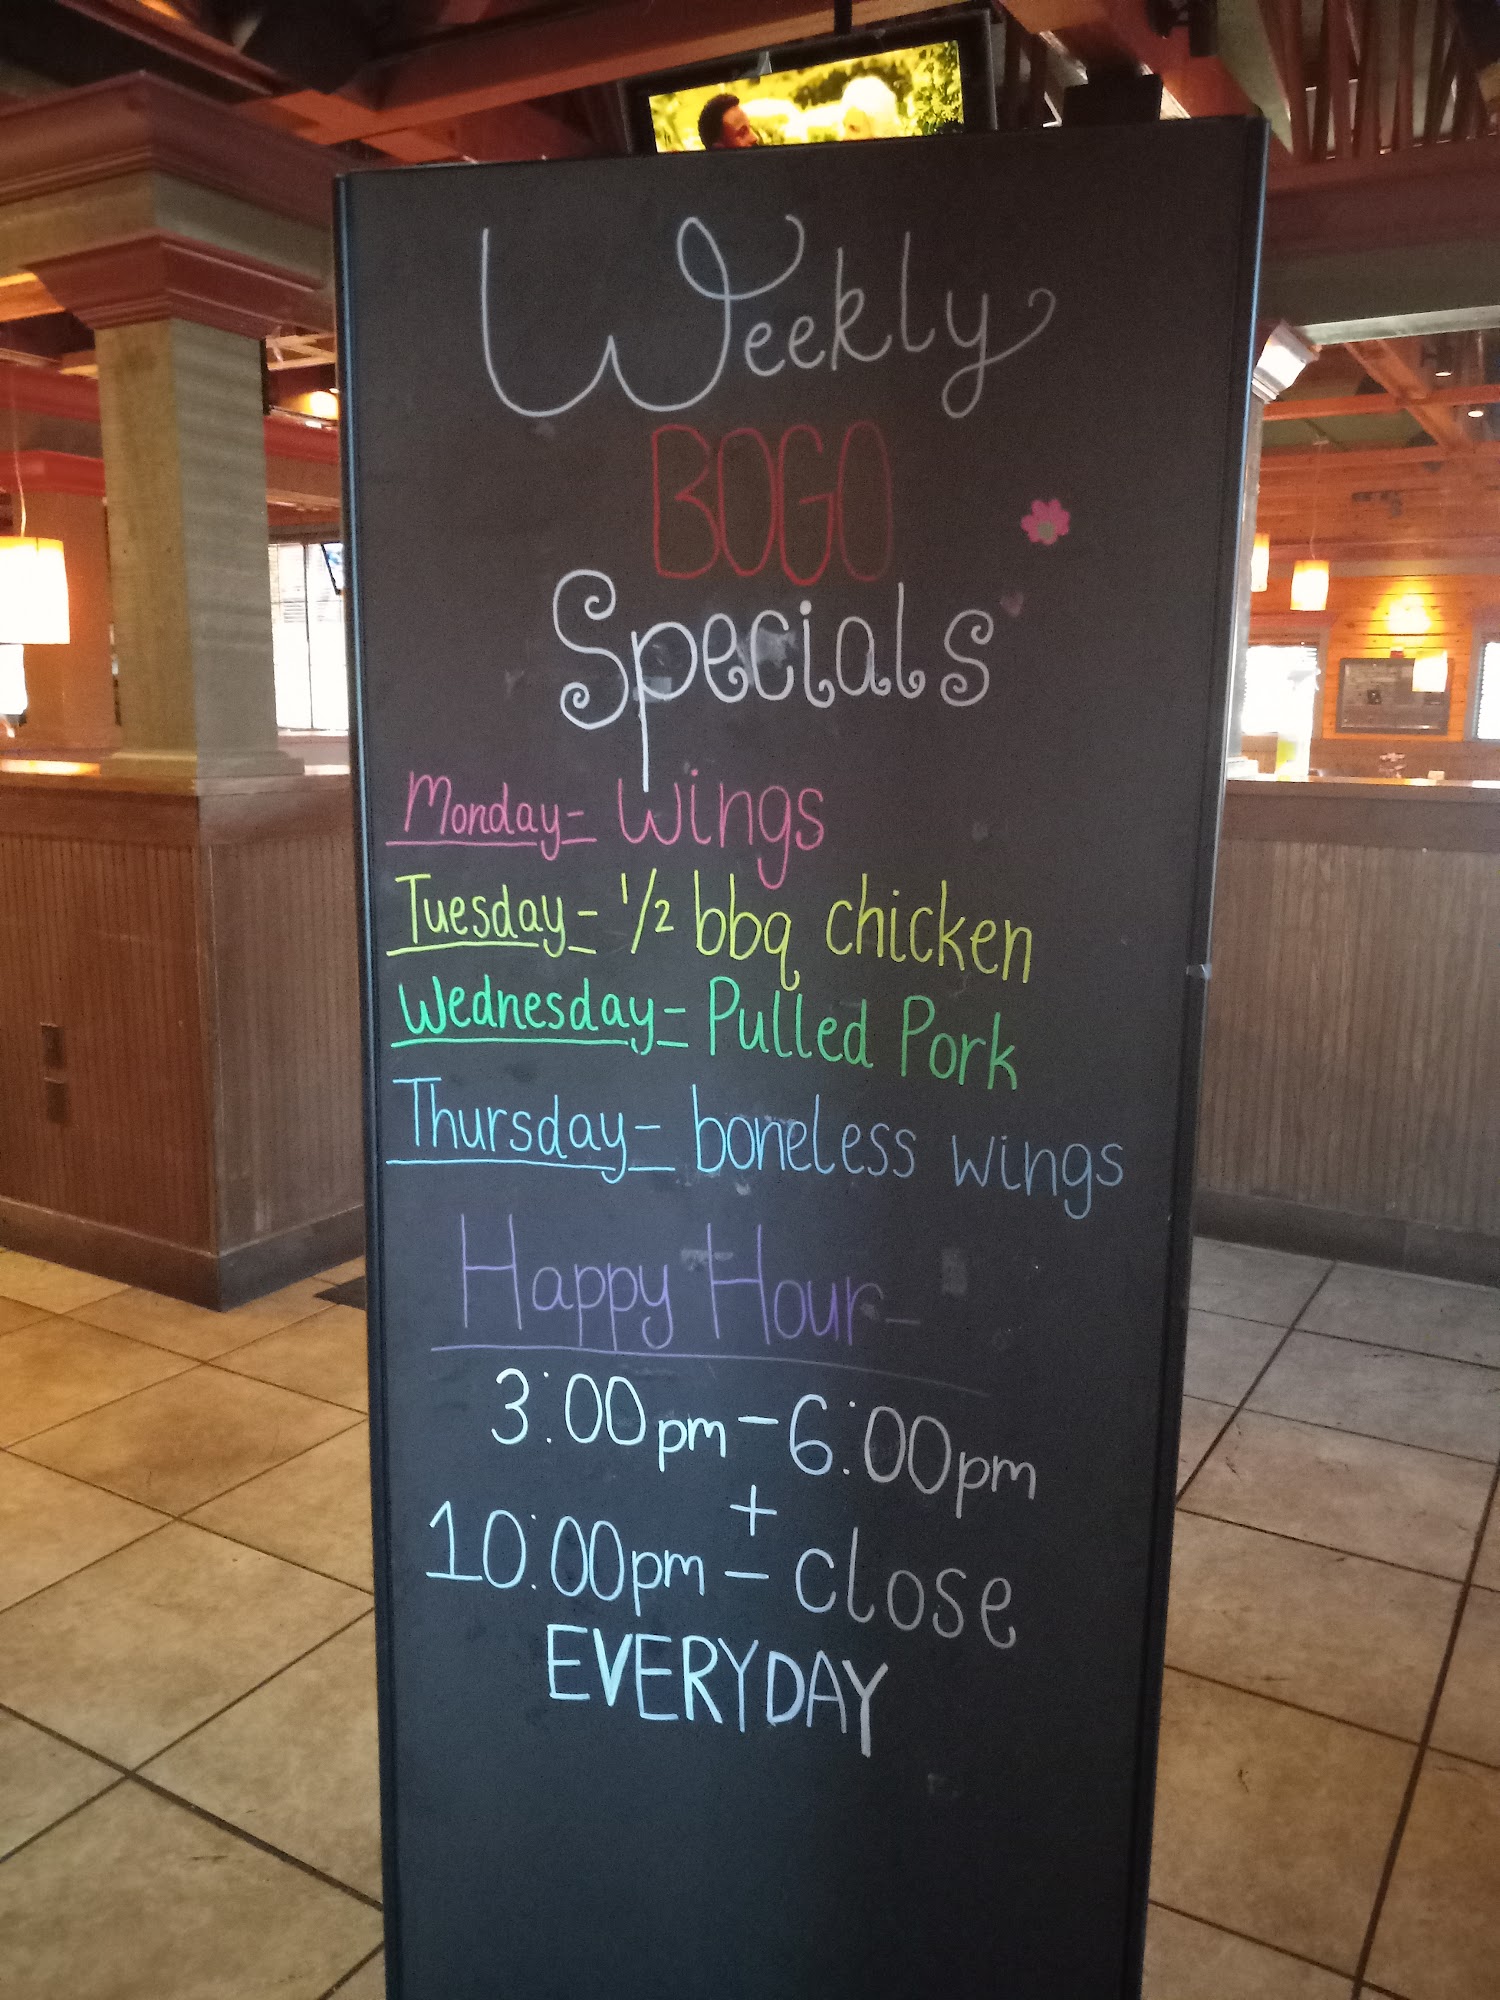 Weekly
BOGO
Specials
Monday- Wings
Tuesday- 1/2 bbq chicken
Wednesday- Pulled Pork
Thursday- boneless wings
Happy Hour-
3:00pm - 6:00pm
+
10:00pm - close
EVERYDAY